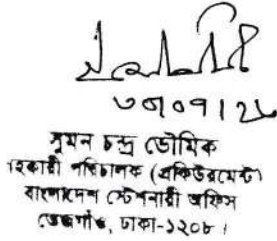 ৩০/০৭/২৫
সুমন চন্দ্র ভৌমিক
সহকারী পরিচালক (প্রকিউরমেন্ট)
বাংলাদেশ স্টেশনারী অফিস
তেজগাঁও, ঢাকা-১২০৮।